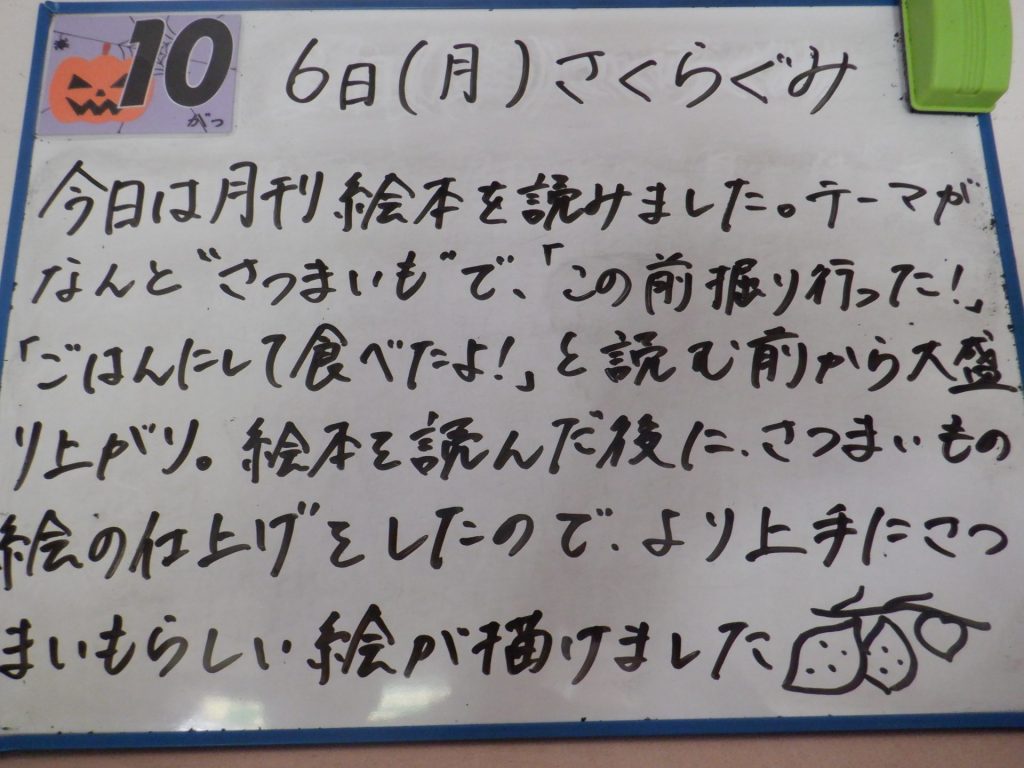 10
がつ
6日(月)さくらぐみ
今日は月刊絵本を読みました。テーマが
なんと"さつまいも"で、「この前掘り行った!」
「ごはんにして食べたよ!」と読む前から大盛
り上がり。絵本を読んだ後に、さつまいもの
絵の仕上げをしたので、より上手にさつ
まいもらしい絵が描けました